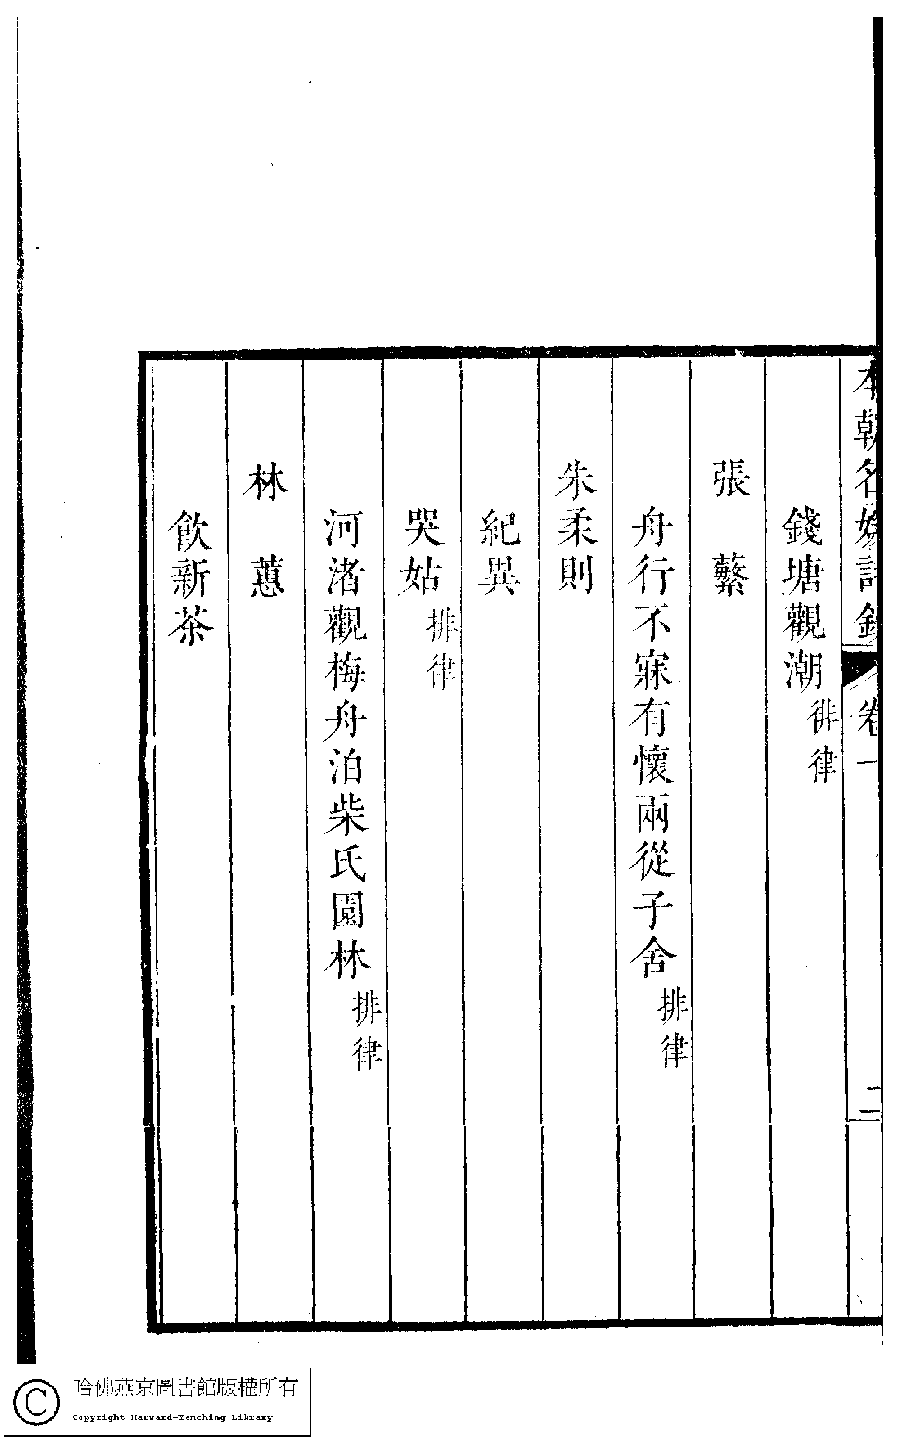 本朝名媛詩鈔 卷一 二
錢塘觀潮 排律
張 蘩
舟行不寐有懷兩從子舍 排律
朱柔則
紀異
哭姑 排律
河渚觀梅舟泊柴氏園林 排律
林 蕙
飲新茶
哈佛燕京圖書館版權所有
Copyright Harvard-Yenching Library